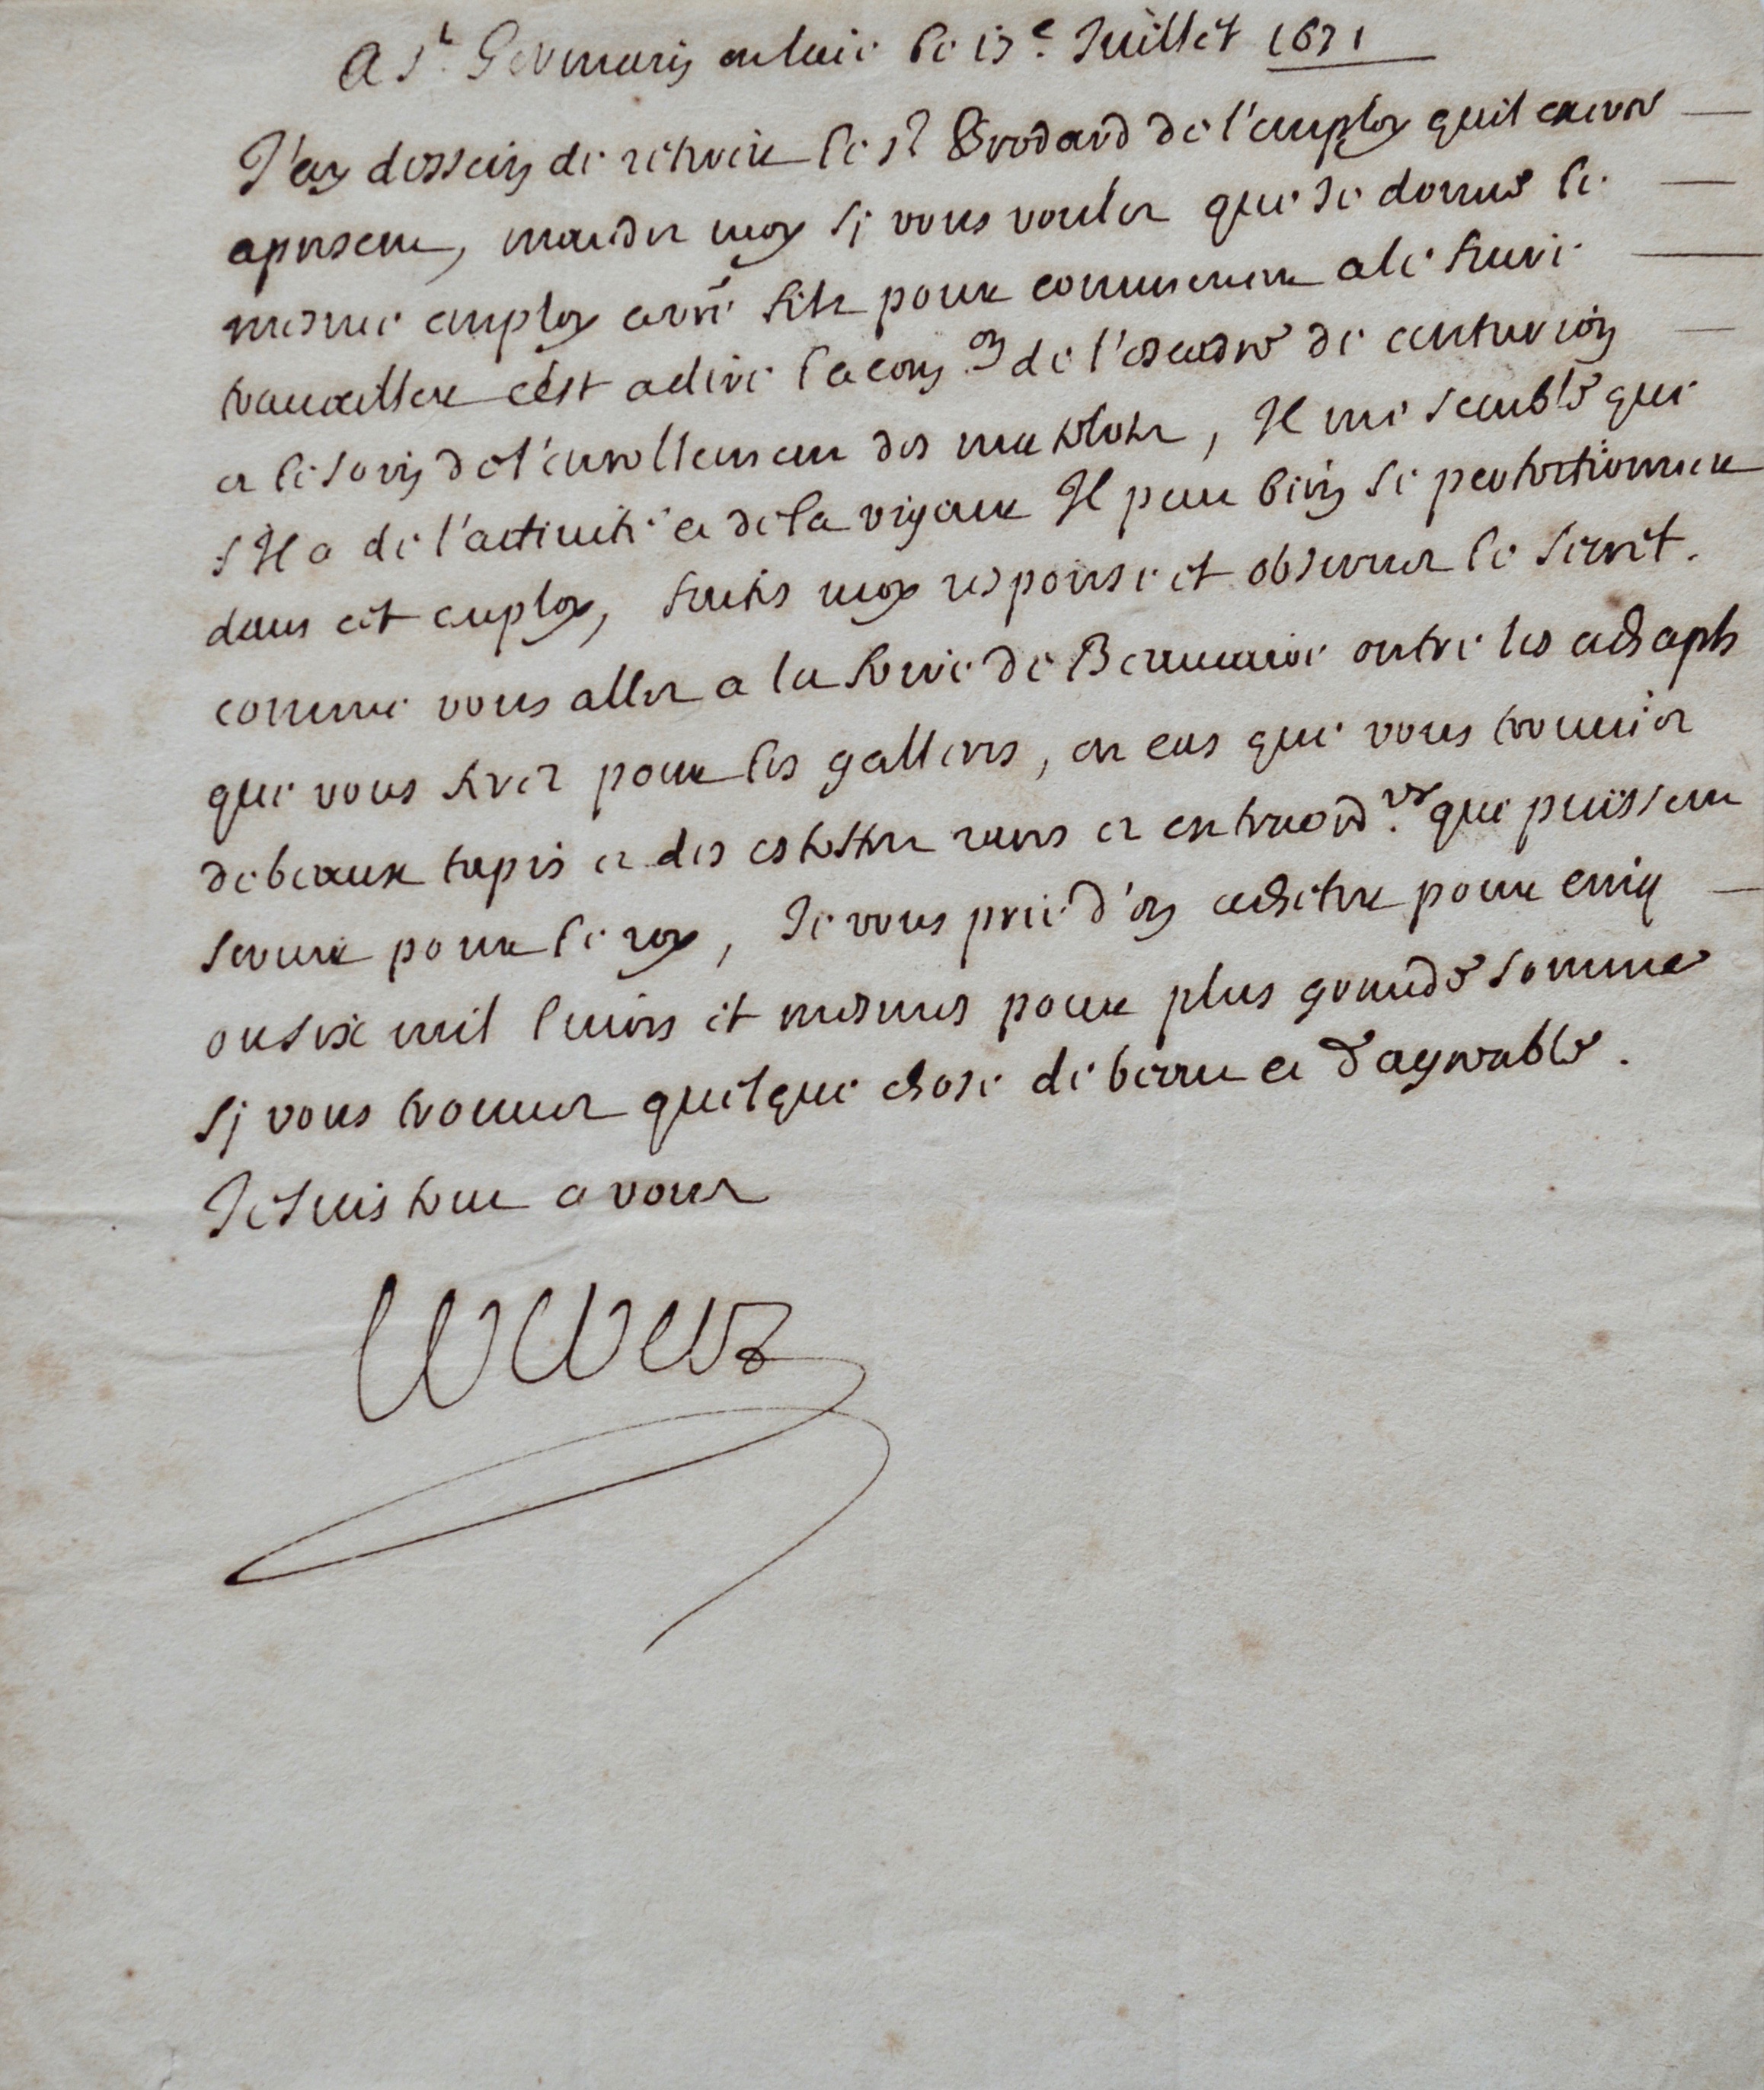 A S.t Germain en laie le 13.e Juillet 1671
J'ay dessein de retirer le S.r Brodard de l'employ quil exerce
apresent, mandez moy sj vous voulez que Je donne le
mesme employ a vre filz pour commencer a le faire
travailler c'est adire la con.on de l'escadre de
et le soin de l'enrollement des matelotz, Il me semble que
s'Il a de l'activité et de la vigeur Il peut bien se
dans cet employ, faites moy response et observez le secret.
comme vous allez a la foire de Beaucaire outre les achaptz
que vous ferez pour les galleres, en cas que vous trouviez
de beaux tapis et des estoffes rares et extraord.res que puissent
servir pour le roy, Je vous prie d'en achetter pour cinq
ou six mil livres et mesmes pour plus grande somme
sj vous trouvez quelque chose de beau et d'agreable.
Je suis tout a vous